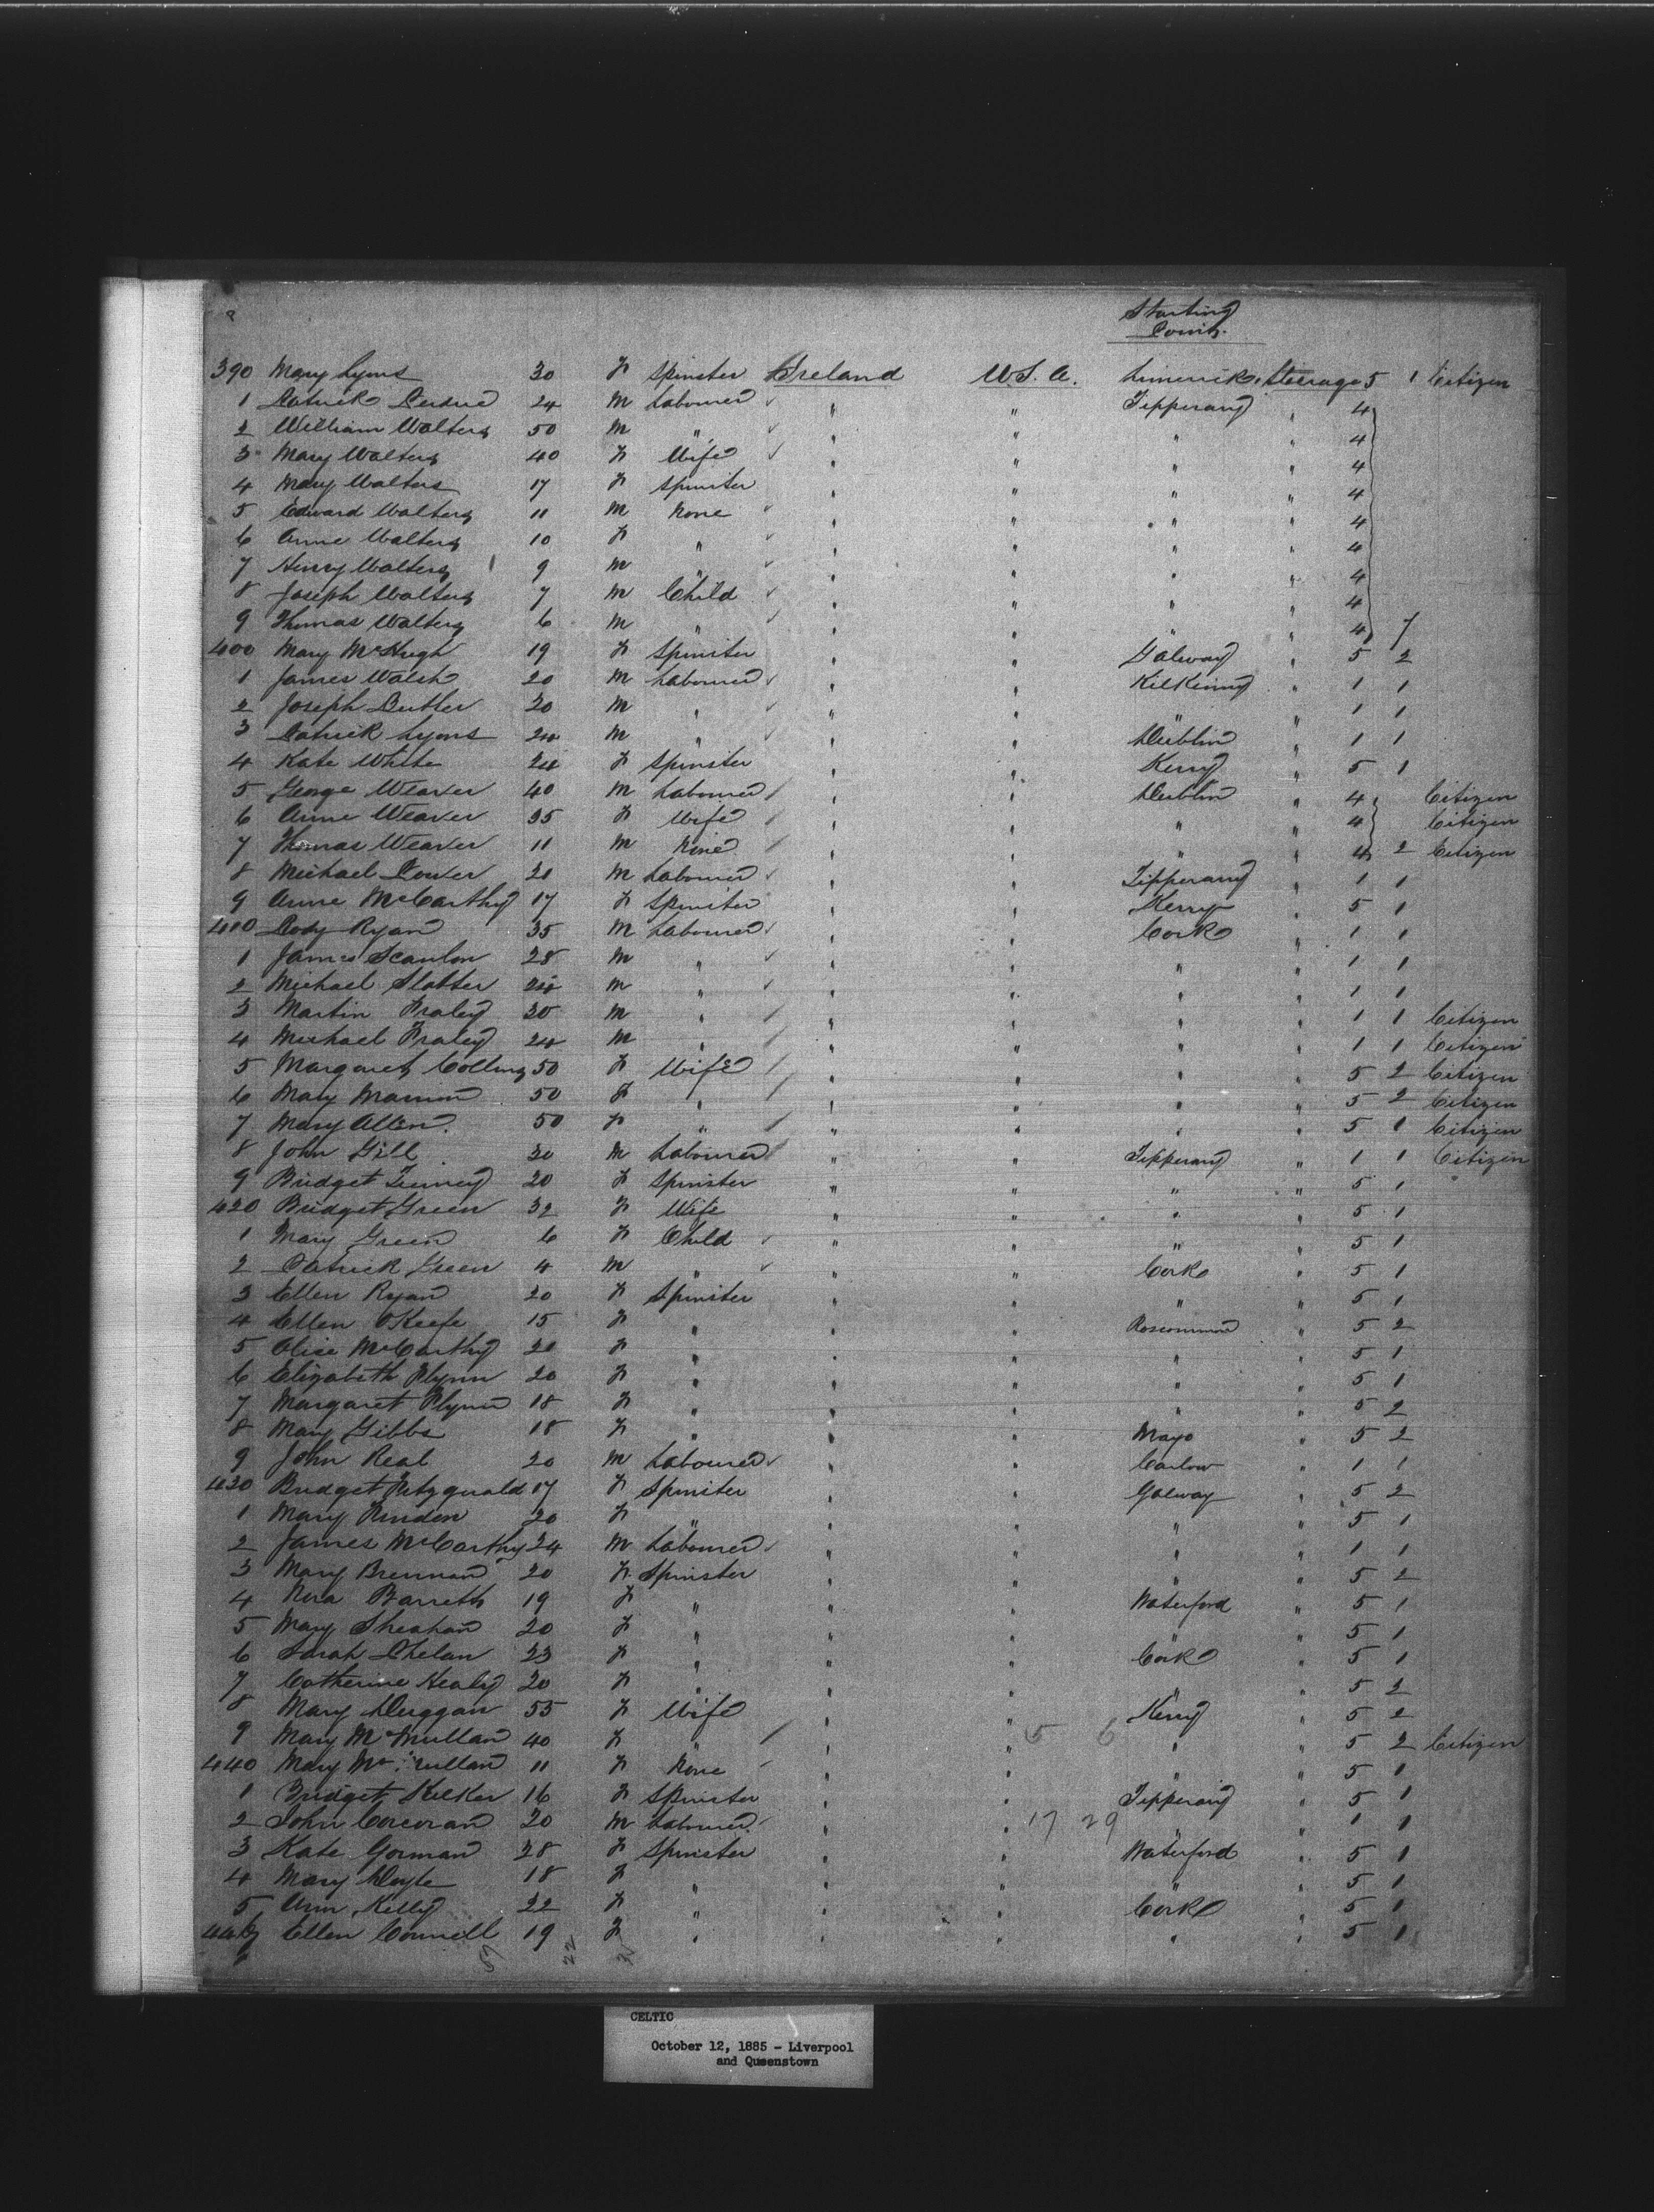 Starting
Point.
390 Mary Lyons 30 F Spinster Ireland U.S.A. Limerick Steerage 5 1 Citizen
1 Patrick Perdue 24 M Labourer " " Tipperary " 4
2 William Walters 50 M " " " " " 4
3 Mary Walters 40 F Wife " " " " 4
4 Mary Walters 17 F Spinster " " " " 4
5 Edward Walters 11 M None " " " " 4
6 Anne Walters 10 F " " " " " 4
7 Henry Walters 9 M " " " " " 4
8 Joseph Walters 7 M Child " " " " 4
9 Thomas Walters 6 M " " " " " 4 7
400 Mary McHugh 19 F Spinster " " Galway " 5 2
1 James Walsh 20 M Labourer " " Kilkenny " 1 1
2 Joseph Butler 20 M " " " " " 1 1
3 Patrick Lyons 24 M " " " Dublin " 1 1
4 Kate White 24 F Spinster " " Kerry " 5 1
5 George Weaver 40 M Labourer " " Dublin " 4 Citizen
6 Anne Weaver 35 F Wife " " " " 4 Citizen
7 Thomas Weaver 11 M None " " " " 4 2 Citizen
8 Michael Power 21 M Labourer " " Tipperary " 1 1
9 Anne McCarthy 17 F Spinster " " Kerry " 5 1
410 Pody Ryan 35 M Labourer " " Cork " 1 1
1 James Scanlon 28 M " " " " " 1 1
2 Michael Slatter M " " " " " 1 1
3 Martin Fraley 30 M " " " " " 1 1 Citizen
4 Michael Fraley 24 M " " " " " 1 1 Citizen
5 Margaret Collins 50 F Wife " " " " 5 2 Citizen
6 Mary Mannin 50 F " " " " " 5 2 Citizen
7 Mary Allen. 50 F " " " " " 5 1 Citizen
8 John Gill 30 M Labourer " " Tipperary " 1 1 Citizen
9 Bridget Tierney 20 F Spinster " " " " 5 1
420 Bridget Green 32 F Wife " " " " 5 1
1 Mary Green 6 F Child " " " " 5 1
2 Patrick Green 4 M " " " Cork " 5 1
3 Ellen Ryan 20 F Spinster " " " " 5 1
4 Ellen O'Keefe 15 F " " " Roscommon " 5 2
5 Alice McCarthy 20 F " " " " " 5 1
6 Elizabeth Flynn 20 F " " " " " 5 1
7 Margaret Flynn 18 F " " " " " 5 2
8 Mary Gibbs 18 F " " " Mayo " 5 2
9 John Real 20 M Labourer " " Carlow " 1 1
430 Bridget Fitzgerald 17 F Spinster " " Galway " 5 2
1 Mary Rindon 20 F " " " " " 5 1
2 James McCarthy 24 M Labourer " " " " 1 1
3 Mary Brennan 20 F Spinster " " " " 5 2
4 Nora Barrett 19 F " " " Waterford " 5 1
5 Mary Sheahan 20 F " " " " " 5 1
6 Sarah Phelan 23 F " " " Cork " 5 1
7 Catherine Healy 20 F " " " " " 5 2
8 Mary Duggan 55 F Wife " " Kerry " 5 2
9 Mary McMullan 40 F " " " 5 6 " " 5 2 Citizen
440 Mary McMullan 11 F None " " " " 5 1
1 Bridget Kilker 16 F Spinster " " Tipperary " 5 1
2 John Corcoran 20 M Labourer " " 17 29 " " 1 1
3 Kate Gorman 28 F Spinster " " Waterford " 5 1
4 Mary Doyle 18 F " " " " " 5 1
5 Ann Kelly 22 F " " " Cork " 5 1
446 Ellen Connell 19 F " " " " " 5 1
22
CELTIC
October 12, 1885 - Liverpool
and Queenstown